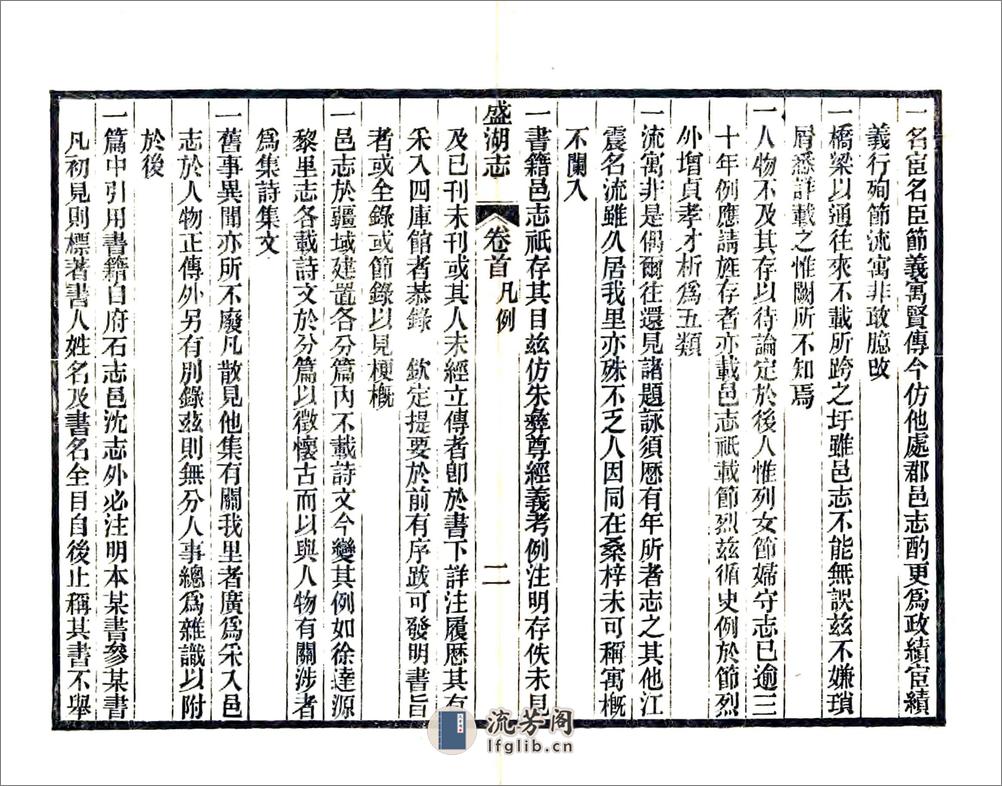 一名宦名臣節義寓賢傳今仿他處郡邑志酌更爲政績宦績
義行殉節流寓非敢臆改
一橋梁以通往來不載所跨之圩雖邑志不能無誤茲不嫌瑣
屑悉詳載之惟闕所不知焉
一人物不及其存以待論定於後人惟列女節婦守志已逾三
十年例應請旌存者亦載邑志祇載節烈茲循史例於節烈
外增貞孝才析爲五類
一流寓非是偶爾往還見諸題詠須歷有年所者志之其他江
震名流雖久居我里亦殊不乏人因同在桑梓未可稱寓槪
不闌入
一書籍邑志祇存其目茲仿朱彝尊經義考例注明存佚未見
及已刊未刊或其人未經立傳者卽於書下詳注履歷其有
盛湖志 卷首 凡例 二
采入四庫館者恭錄 欽定提要於前有序跋可發明書旨
者或全錄或節錄以見梗槪
一邑志於疆域建置各分篇內不載詩文今變其例如徐達源
黎里志各載詩文於分篇以徵懷古而以與人物有關涉者
爲集詩集文
一舊事異聞亦所不廢凡散見他集有關我里者廣爲采入邑
志於人物正傳外另有別錄茲則無分人事總爲雜識以附
於後
一篇中引用書籍自府石志邑沈志外必注明本某書參某書
凡初見則標著書人姓名及書名全目自後止稱其書不舉
流芳阁
lfglib.cn